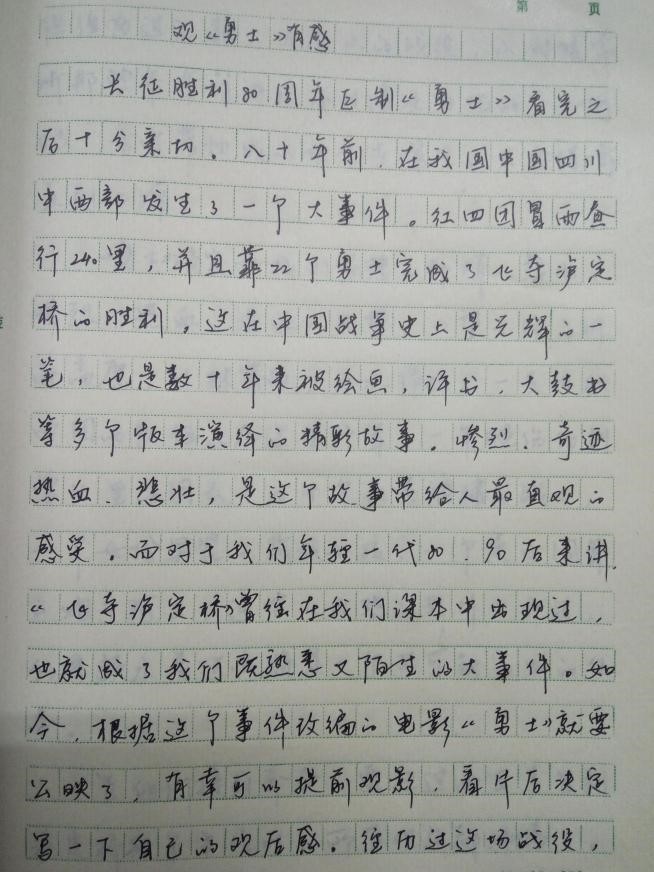 第 页
观《勇士》有感
长征胜利80周年巨制《勇士》看完之
后十分亲切。八十年前,在我国中国四川
中西部发生了一个大事件。红四团冒雨急
行240里,并且靠22个勇士完成了飞夺泸定
桥的胜利。这在中国战争史上是光辉的一
笔,也是数十年来被绘画,评书,大鼓书
等多个版本演绎的精彩故事。惨烈、奇迹
热血、悲壮,是这个故事带给人最直观的
感受。而对于我们年轻一代80、90后来讲,
《飞夺泸定桥》曾经在我们课本中出现过,
也就成了我们既熟悉又陌生的大事件。如
今,根据这个事件改编的电影《勇士》就要
公映了,有幸可以提前观影,看片后决定
写一下自己的观后感。经历过这场战役,